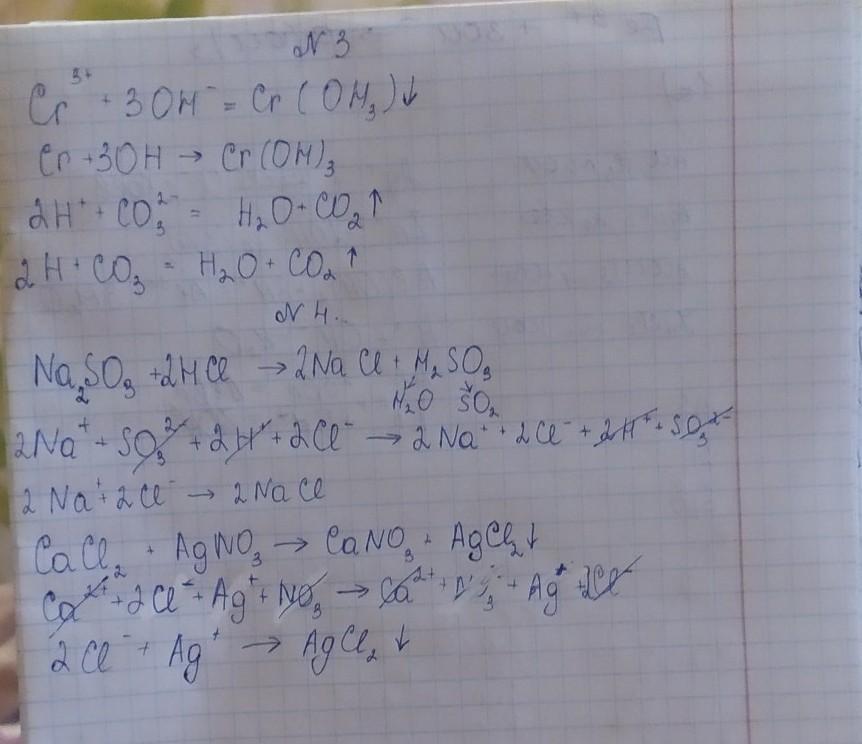 N 3
Cr³⁺ + 3OH⁻ = Cr(OH₃)↓
Cr + 3OH → Cr(OH)₃
2H⁺ + CO₃²⁻ = H₂O + CO₂↑
2H + CO₃ = H₂O + CO₂↑
N 4.
Na₂SO₃ + 2HCl → 2NaCl + H₂SO₃
H₂O SO₂
2Na⁺ + SO₃²⁻ + 2H⁺ + 2Cl⁻ → 2Na⁺ + 2Cl⁻ + 2H⁺ + SO₃²⁻
2Na⁺ + 2Cl⁻ → 2NaCl
CaCl₂ + AgNO₃ → CaNO₃ + AgCl₂↓
Ca²⁺ + 2Cl⁻ + Ag⁺ + NO₃ → Ca²⁺ + Ag⁺ + 2Cl⁻
2Cl⁻ + Ag⁺ → AgCl₂↓